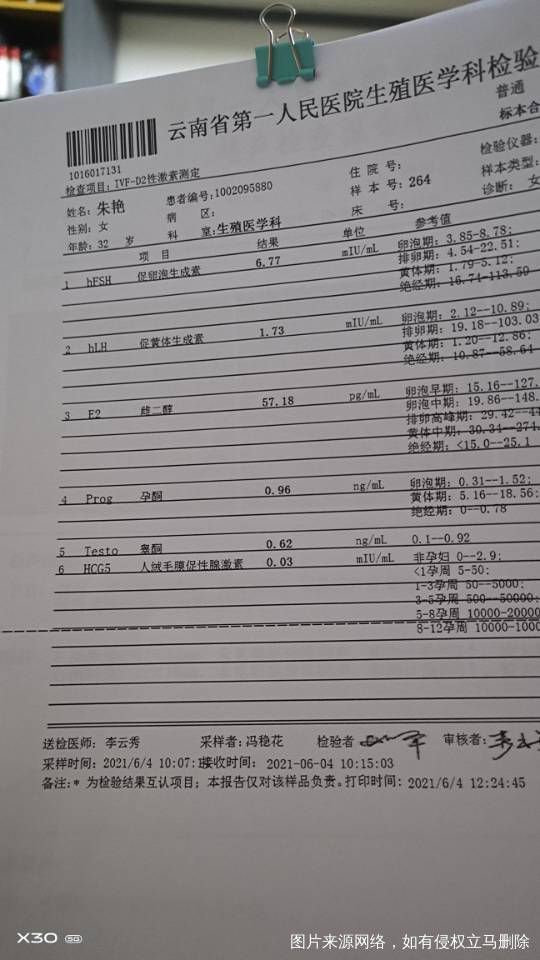 云南省第一人民医院生殖医学科检验
普通
标本合
1016017131
检查项目: IVF-D2性激素测定
姓名: 朱艳
患者编号:1002095880
住 院 号:
检验仪器:
性别: 女
病 区:
样 本 号: 264
样本类型:
年龄: 32 岁
科 室:生殖医学科
床 号:
诊断: 女
项 目 结果 单位 参考值
1 hFSH 促卵泡生成素 6.77 mIU/mL 卵泡期: 3.85-8.78;
排卵期: 4.54-22.51;
黄体期: 1.79-5.12;
绝经期: 16.74-113.59
2 hLH 促黄体生成素 1.73 mIU/mL 卵泡期: 2.12--10.89;
排卵期: 19.18--103.03
黄体期: 1.20--12.86;
绝经期: 10.87--58.64
3 E2 雌二醇 57.18 pg/mL 卵泡早期: 15.16--127.
卵泡中期: 19.86--148.
排卵高峰期: 29.42--44
黄体中期: 30.34--274.
绝经期: <15.0--25.1
4 Prog 孕酮 0.96 ng/mL 卵泡期: 0.31--1.52;
黄体期: 5.16--18.56;
绝经期: 0--0.78
5 Testo 睾酮 0.62 ng/mL 0.1--0.92
6 HCG5 人绒毛膜促性腺激素 0.03 mIU/mL 非孕妇 0--2.9;
<1孕周 5-50;
1-3孕周 50--5000;
3-5孕周 500--50000;
5-8孕周 10000-20000
8-12孕周 10000-1000
送检医师: 李云秀 采样者: 冯稳花 检验者 审核者:
采样时间: 2021/6/4 10:07:1 接收时间: 2021-06-04 10:15:03
备注:* 为检验结果互认项目; 本报告仅对该样品负责。打印时间: 2021/6/4 12:24:45
X30 5G
图片来源网络，如有侵权立马删除